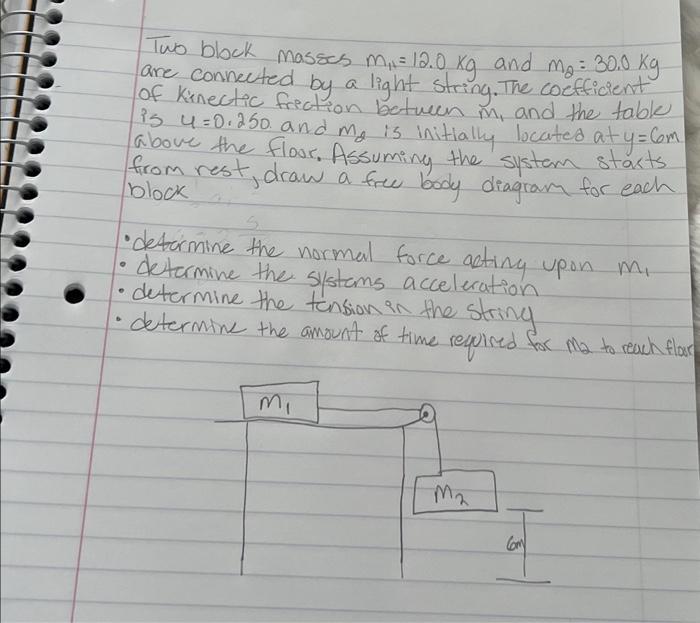 Two block masses m₁ = 12.0 kg and m₂ = 30.0 kg
are connected by a light string. The coefficient
of kinectic friction between m₁ and the table
is u = 0.250 and m₂ is initially located at y = 6m
above the floor. Assuming the system starts
from rest, draw a free body diagram for each
block
• determine the normal force acting upon m₁
• determine the systems acceleration
• determine the tension in the string
• determine the amount of time required for m₂ to reach floor
m₁
m₂
6m